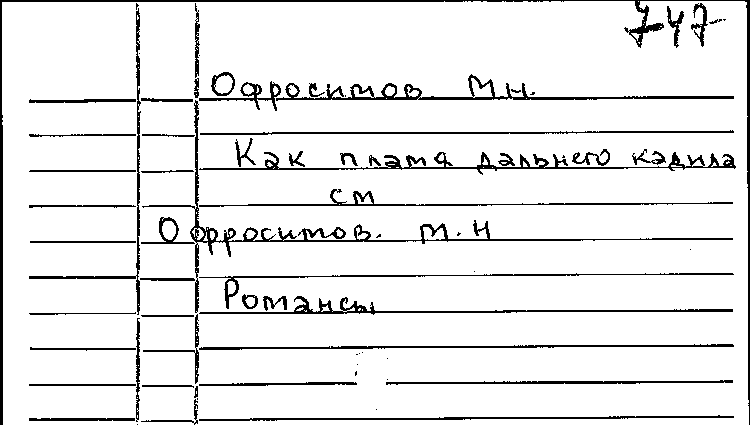 747
Офросимов М.Н.
Как пламя дальнего кадила
см
Офросимов. М.Н
Романсы